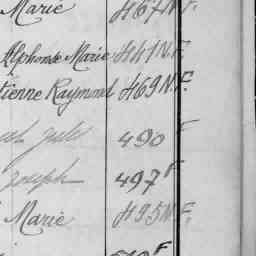 Marie 467 N.F.
Alphonse Marie 441 N.F.
tienne Raymond 469 N.F.
Jules 490 F
Joseph 497 F
Marie 495 N.F.
F